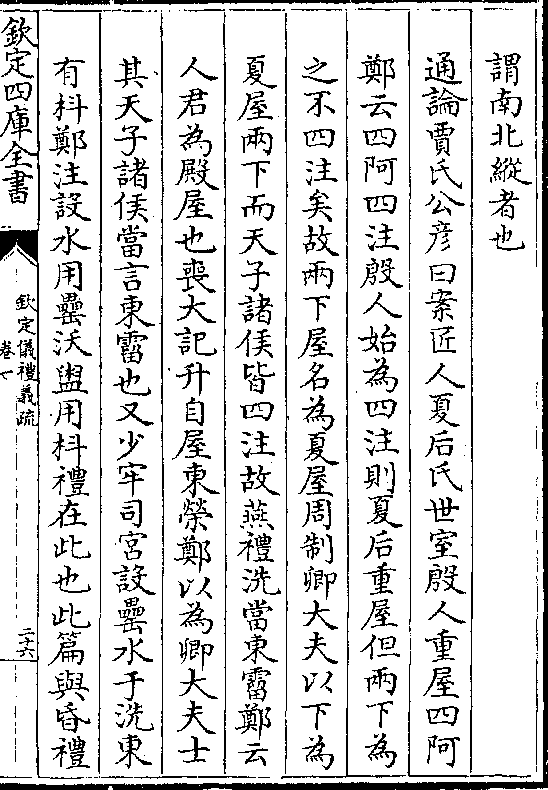 謂南北縱者也
通論賈氏公彦曰案匠人夏后氏世室殷人重屋四阿
鄭云四阿四注殷人始為四注則夏后重屋但兩下為
之不四注矣故兩下屋名為夏屋周制卿大夫以下為
夏屋兩下而天子諸侯皆四注故燕禮洗當東霤鄭云
人君為殿屋也喪大記升自屋東榮鄭以為卿大夫士
其天子諸侯當言東霤也又少牢司宮設罍水于洗東
有枓鄭注設水用罍沃盥用枓禮在此也此篇與昏禮
欽定四庫全書
欽定儀禮義疏
卷七
二十六